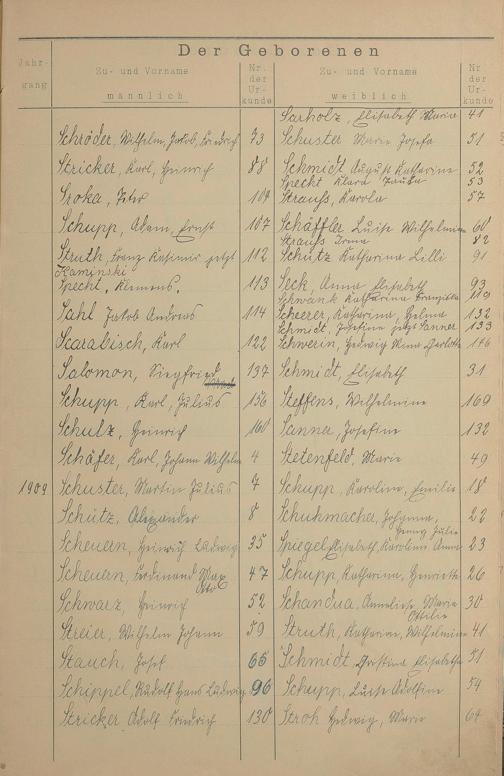 Der Geborenen
Jahrgang
Zu- und Vorname
männlich
Nr. der Urkunde
Zu- und Vorname
weiblich
Nr. der Urkunde
Sarholz, Elisabeth Maria 41
Schröder, Wilhelm, Jakob, Friedrich 73 Schuster Maria Josefa 51
Stricker, Karl, Heinrich 88 Schmidt, August Katharina 52
Specht Klara 53
Sroka, Peter 104 Strauß, Karola 57
Schupp, Adam, Ernst 107 Schäffler Luise Wilhelmine 60
Strauß Irma 82
Struth, Franz Kasimir jetzt 112 Schütz Katharina Lilli 91
Kaminski
Specht, Klemens. 113 Seck, Anna Elisabeth 93
Schwank Katharina Franziska 119
Sahl Jakob Andreas 114 Scheerer, Katharina, Helma 132
Schmidt, Josefine jetzt Sanner 133
Scarabisch, Karl 122 Schwerin, Hedwig Charlotte 146
Salomon, Siegfried 137 Schmidt, Elisabeth 31
Schupp, Karl, Julius 156 Steffens, Wilhelmine 169
Schulz, Heinrich 160 Sanner, Josefine 132
Schäfer, Karl, Johann Wilhelm 4 Stetenfeld, Maria 49
1909 Schuster, Martin Julius 7 Schupp, Karoline, Emilie 18
Schütz, Alexander 8 Schuhmacher, Johanna, 22
Julie
Scheuern, Heinrich Ludwig 35 Spiegel Elisabeth, Karoline Anna 23
Scheuern, Ferdinand Max 47 Schupp, Katharina, Henriette 26
Otto
Schwarz, Heinrich 52 Schandua, Anneliese, Maria 30
Ottilie
Streier, Wilhelm Johann 59 Struth, Katharina, Wilhelmine 41
Stauch, Josef 65 Schmidt, Christina Elisabetha 51
Schippel, Rudolf Hans Ludwig 96 Schupp, Luise Adolfine 54
Stricker Adolf Friedrich 130 Stroh Hedwig, Maria 64